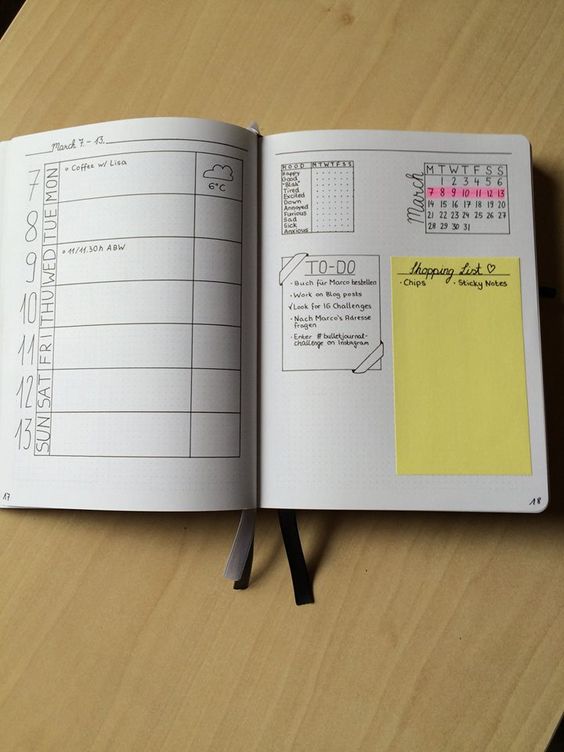 March 7. - 13.
7 MON
• Coffee w/ Lisa
6°C
8 TUE
9 WED
• 11/11.30h ABW
10 THU
11 FRI
12 SAT
13 SUN
17
MOOD M T W T F S S
Happy
Good
"Blah"
Tired
Excited
Down
Annoyed
Furious
Sad
Sick
Anxious
March
M T W T F S S
1 2 3 4 5 6
7 8 9 10 11 12 13
14 15 16 17 18 19 20
21 22 23 24 25 26 27
28 29 30 31
TO-DO
• Buch für Marco bestellen
• Work on Blog posts
√ Look for IG Challenges
• Nach Marco's Adresse
fragen
• Enter #bulletjournal-
challenge on Instagram
Shopping List ♡
• Chips • Sticky Notes
18